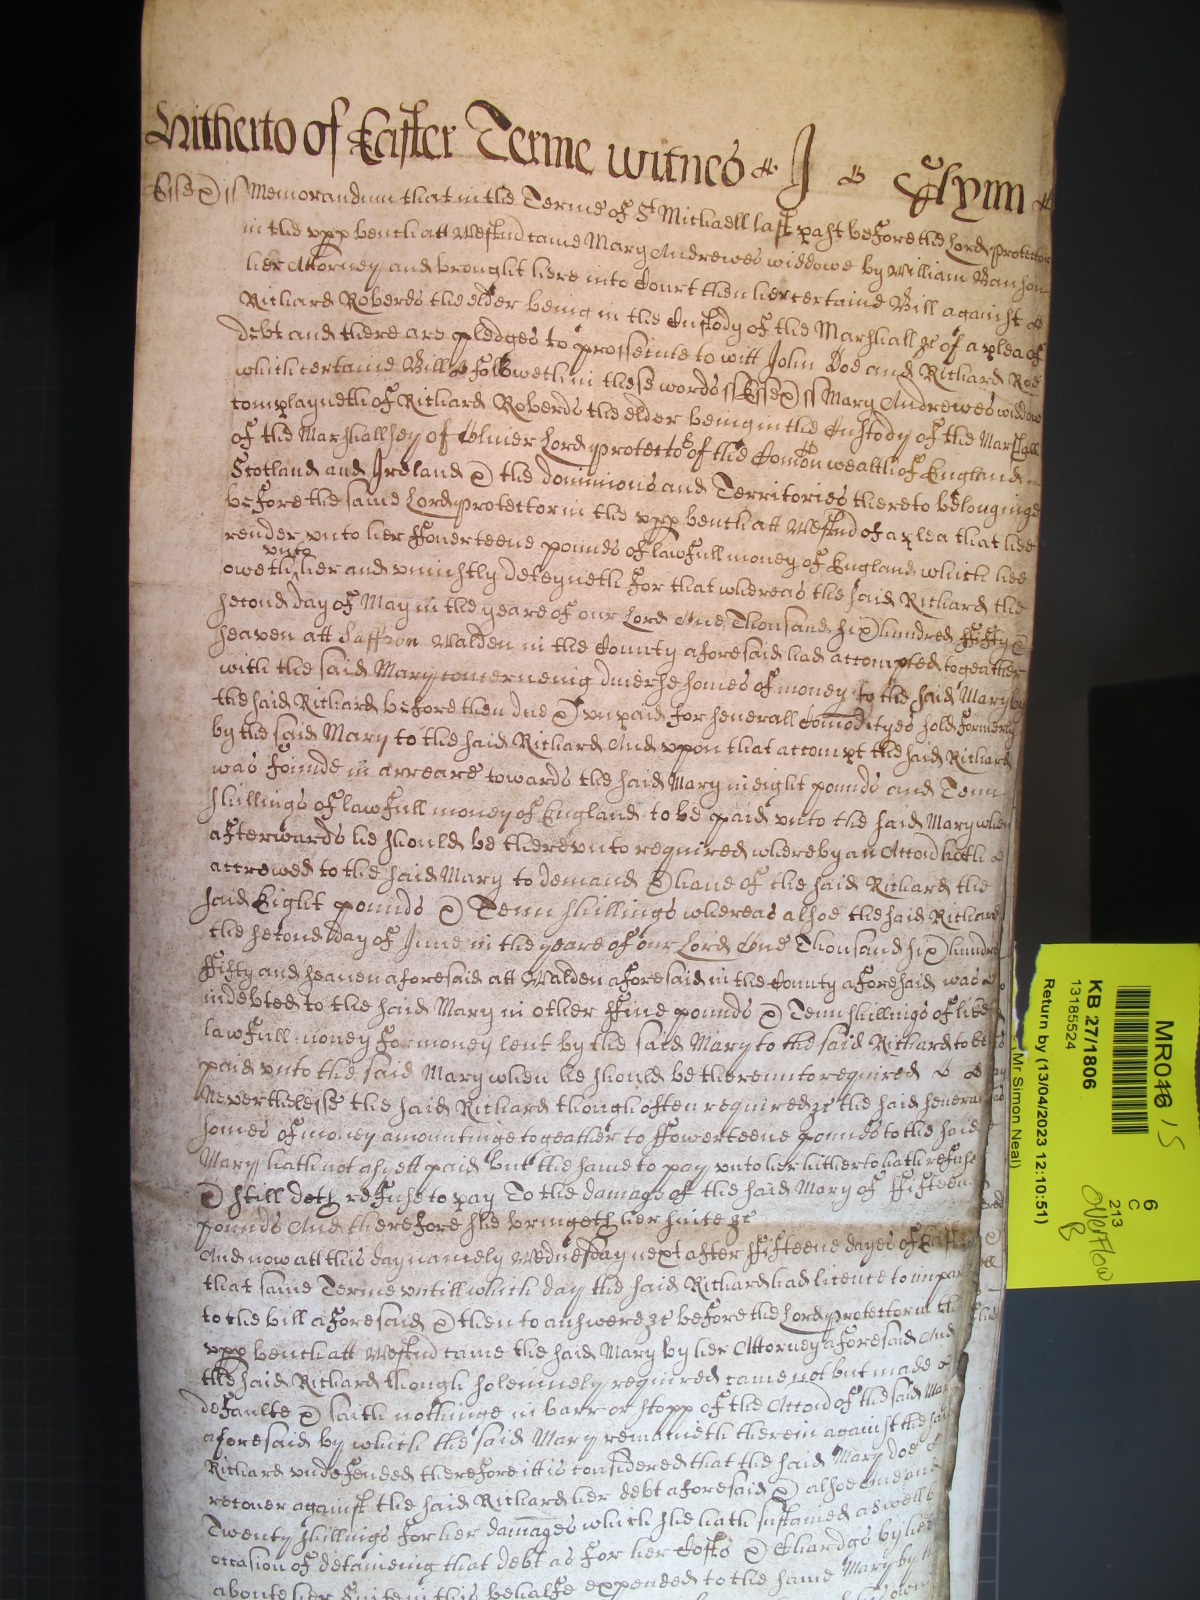 Hitherto of Easter Terme witnes J Glynn
Essex ss Memorandum that in the Terme of St Michaell last past before the Lord Protector
in the upp bench att Westmr came Mary Andrewes widdowe by William
her Attorney and brought here into Court then her certaine Bill against
Richard Roberds the elder being in the Custody of the Marshall &c of a plea of
debt and there are pledges to prosecute to witt John Doe and Richard Roe
which certaine Bill followeth in these words ss Essex ss Mary Andrewes widdow
complayneth of Richard Roberds the elder being in the Custody of the Marshall
of the Marshallsey of Oliver Lord protector of the Comonwealth of England
Scotland and Ireland & the dominions and Territories thereto belonginge
before the same Lord protector in the upp bench att Westmr of a plea that hee
render unto her ffowerteene pounds of lawfull money of England which hee
unto
oweth her and uniustly deteyneth for that whereas the said Richard the
second day of May in the yeare of our Lord One Thousand six hundred ffifty &
seaven att Saffron Walden in the County aforesaid had accompted togeather
with the said Mary concerneing diverse somes of money to the said Mary by
the said Richard before then due & unpaid for severall Comodityes sold formerly
by the said Mary to the said Richard And uppon that accompt the said Richard
was founde in arreare towards the said Mary in eight pounds and Tenn
shillings of lawfull money of England to be paid unto the said Mary when
afterwards he should be thereunto required whereby an Accon hath
accrewed to the said Mary to demand & have of the said Richard the
said Eight pounds & Tenn shillings whereas alsoe the said Richard
the second day of June in the yeare of our Lord One Thousand six hundred
ffifty and seaven aforesaid att Walden aforesaid in the County aforesaid was
indebted to the said Mary in other ffive pounds & Tenn shillings of like
lawfull money for money lent by the said Mary to the said Richard to be
paid unto the said Mary when he should be thereunto required
Neverthelesse the said Richard though often required &c the said severall
somes of money amountinge togeather to ffowerteene pounds to the said
Mary hath not as yett paid but the same to pay unto her hitherto hath refused
& still doth refuse to pay To the damage of the said Mary of ffifteene
pounds And therefore she bringeth her suite &c
And now att this day namely Wednesday next after ffifteene dayes of Easter
that same Terme untill which day the said Richard had licence to imparle
to the bill aforesaid & then to answere &c before the Lord protector in the
upp bench att Westmr came the said Mary by her Attorney aforesaid And
the said Richard though solemnely required came not but made
defaulte & saith nothinge in barr or stopp of the Accon of the said Mary
aforesaid by which the said Mary remaineth therein against the said
Richard undefended therefore itt is considered that the said Mary doe
recover against the said Richard her debt aforesaid & alsoe one and
Twenty shillings for her damages which she hath susteined aswell by
occasion of detaineing that debt as for her Costs & Chardgs by her
about her suite in this behalfe expended to the same Mary by
MR046 15
KB 27/1806
13185524
Return by (13/04/2023 12:10:51)
(Mr Simon Neal)
6
C
213
Overflow
B